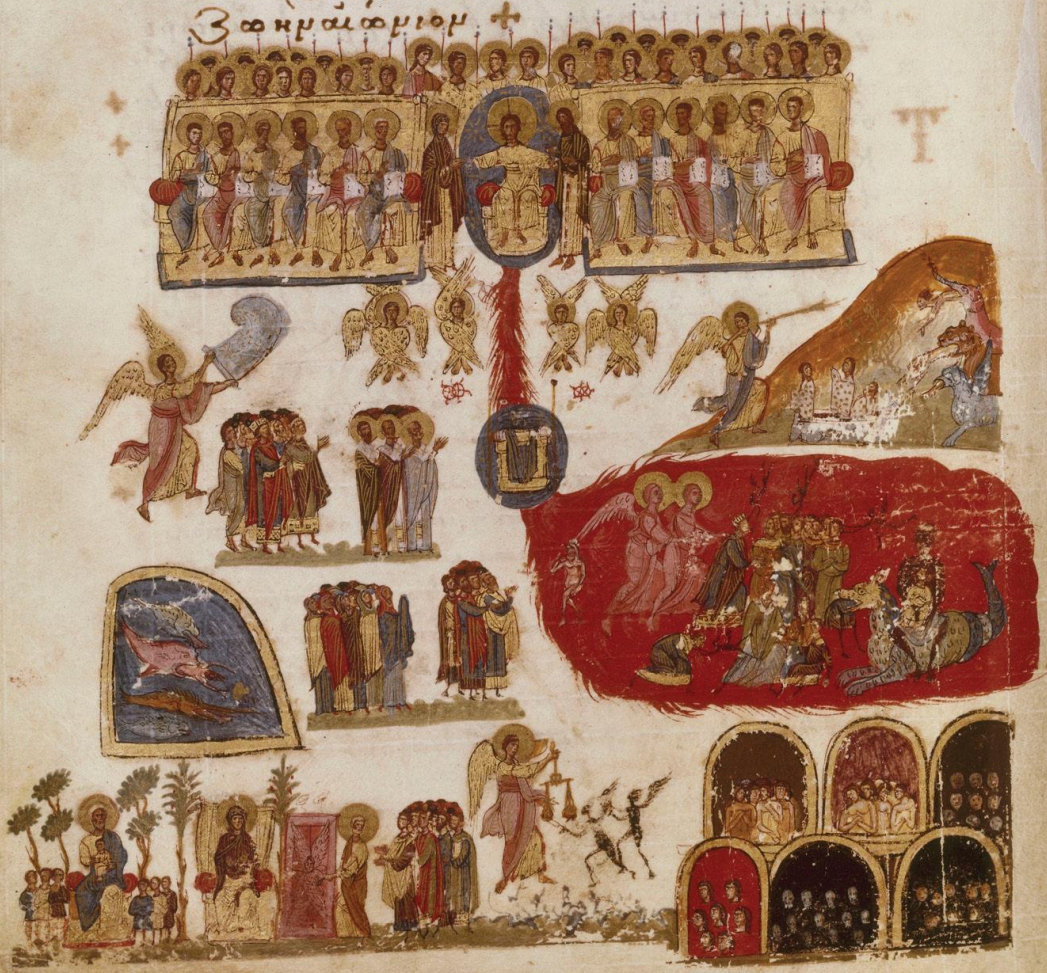 ζωὴν αἰώνιον +
Τ